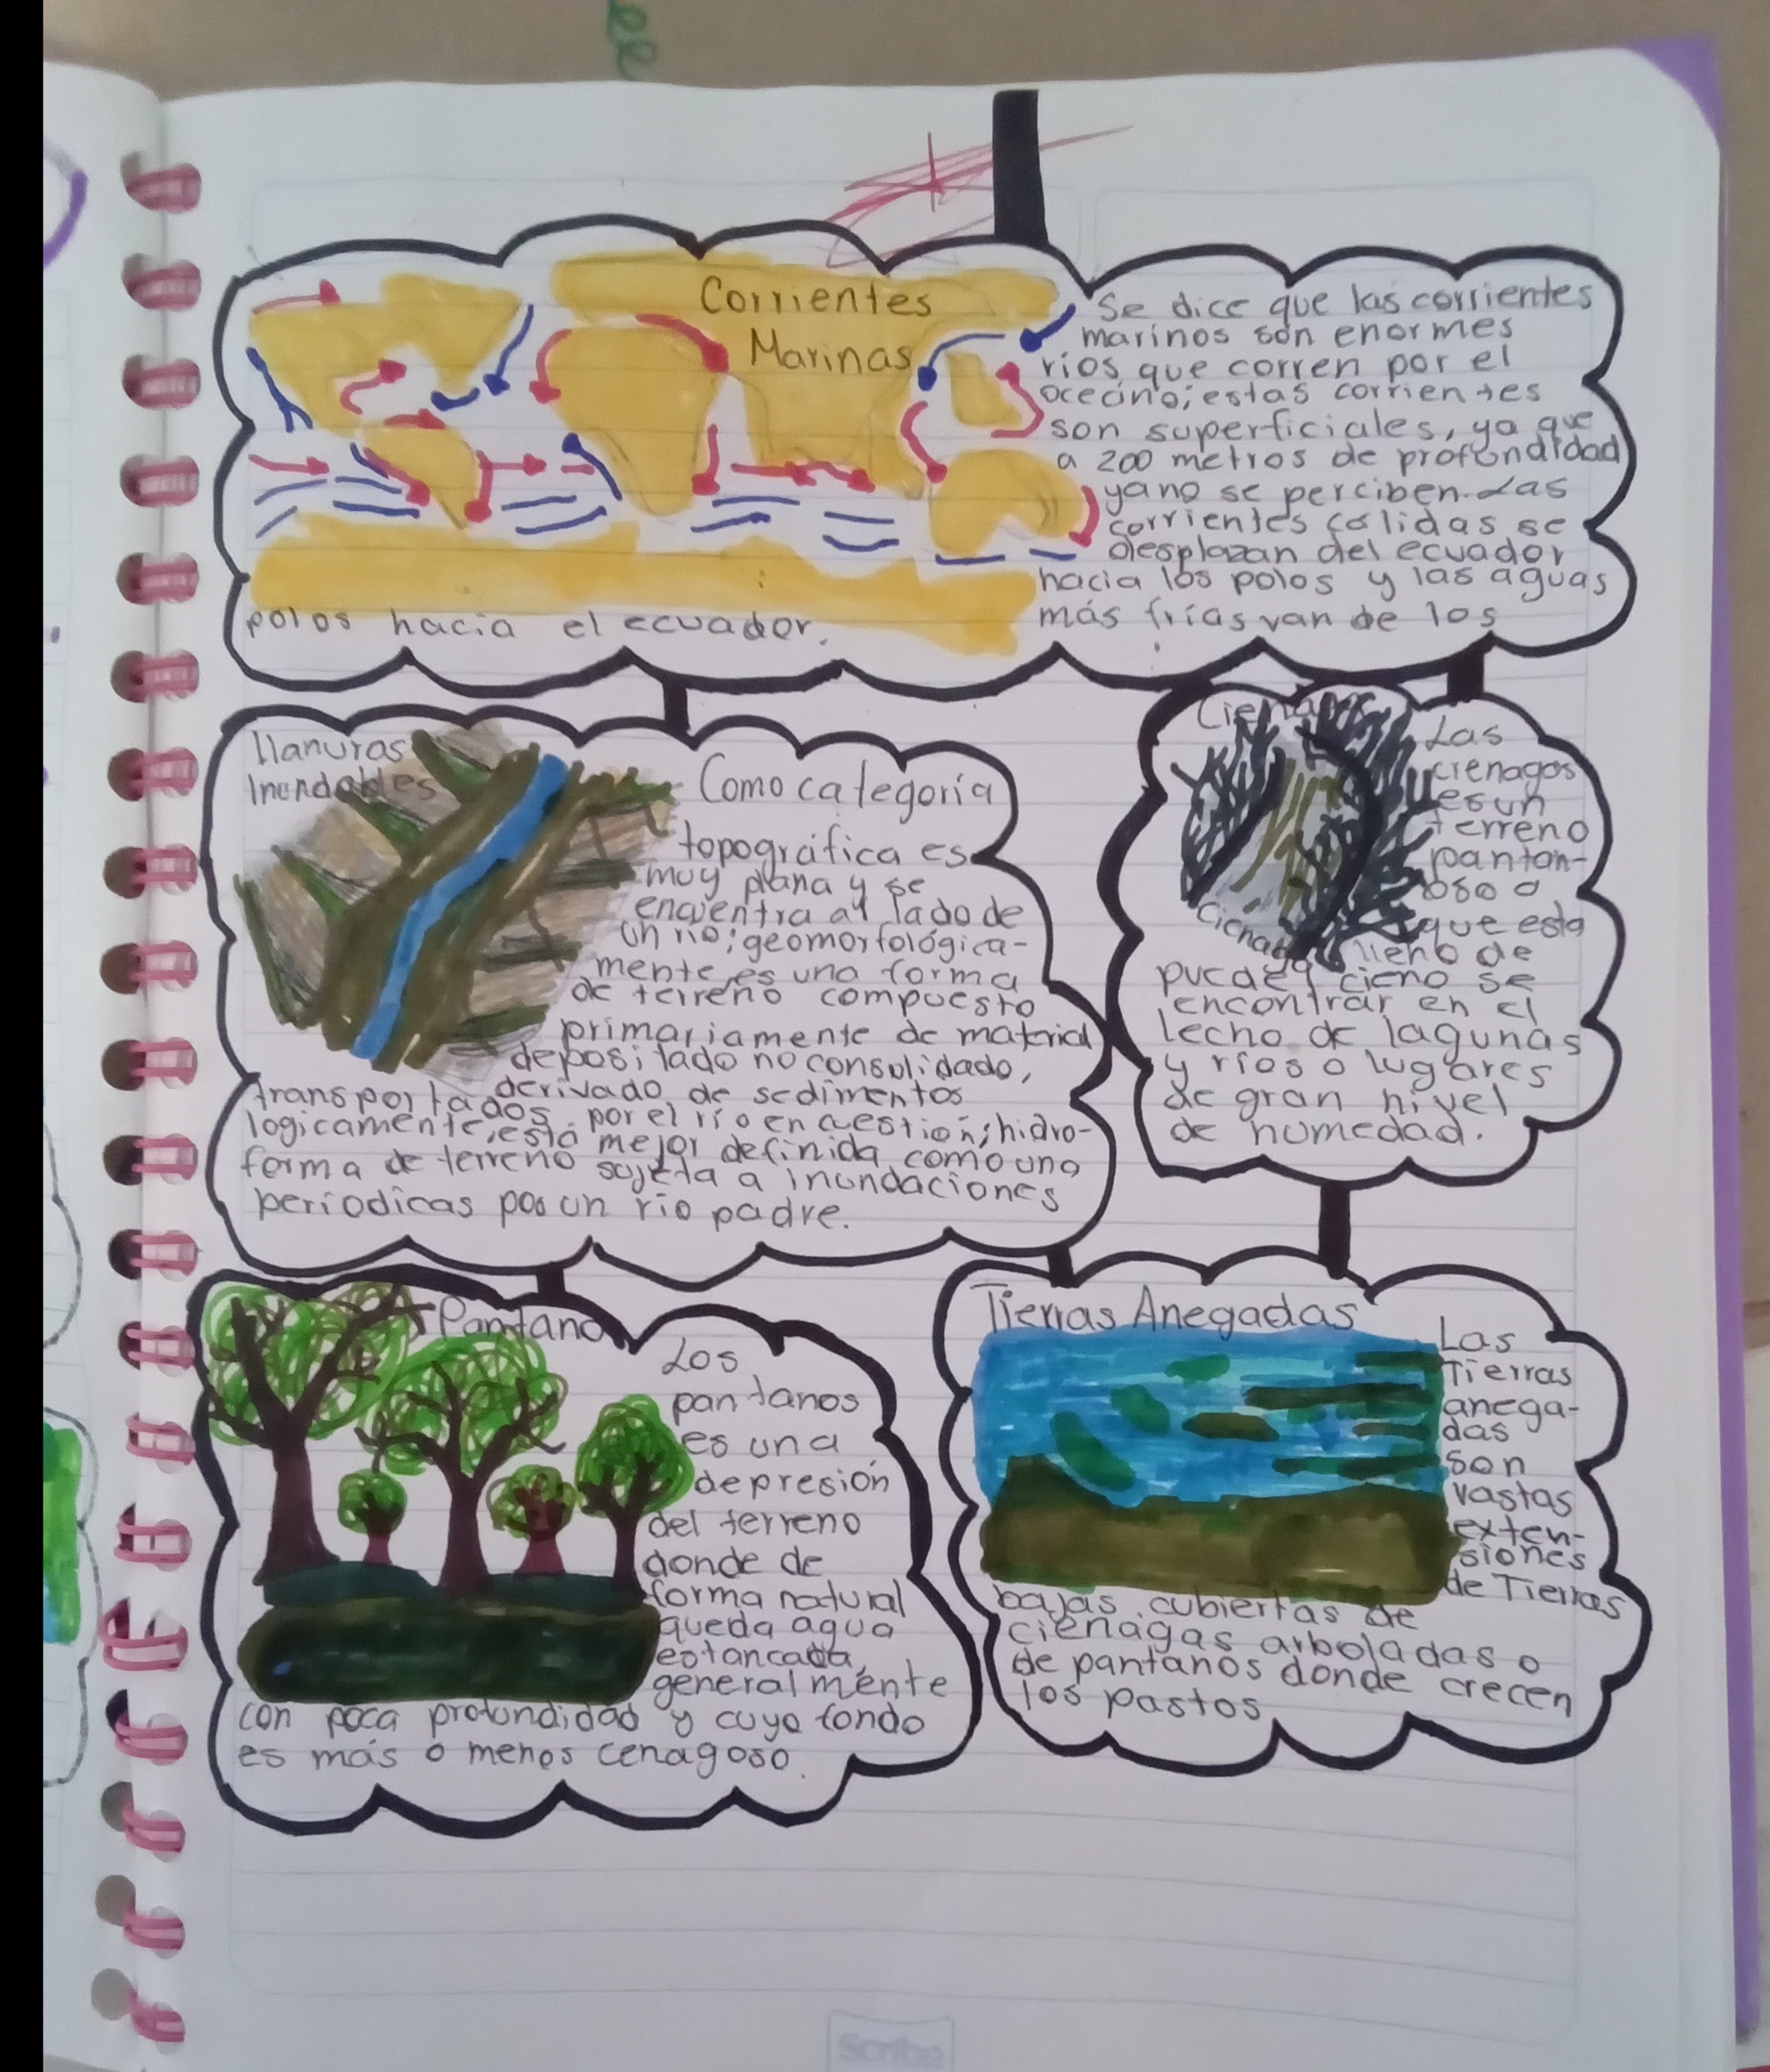 Corrientes
Marinas
Se dice que las corrientes
marinos son enormes
ríos que corren por el
oceáno; estas corrientes
son superficiales, ya que
a 200 metros de profundidad
ya no se perciben. Las
corrientes cálidas se
desplazan del ecuador
hacia los polos y las aguas
más frías van de los
polos hacia el ecuador.
llanuras
Inundables
Como categoría
topográfica es
muy plana y se
encuentra al lado de
un río; geomorfológica-
mente es una forma
de terreno compuesto
primariamente de material
depositado no consolidado,
derivado de sedimentos
transportados por el río en cuestión; hidro-
logicamente, está mejor definida como una
forma de terreno sujeta a inundaciones
periodicas por un río padre.
Cienaga
Cienaga
Las
cienagas
es un
terreno
pantan-
oso o
que esta
lleno de
cieno se
puede
encontrar en el
lecho de lagunas
y ríos o lugares
de gran nivel
de humedad.
Pantano
Los
pantanos
es una
depresión
del terreno
donde de
forma natural
queda agua
estancada,
generalmente
con poca profundidad y cuyo fondo
es más o menos cenagoso.
Tierras Anegadas
Las
Tierras
anega-
das
son
vastas
exten-
siones
de Tierras
bajas cubiertas de
cienagas arboladas o
de pantanos donde crecen
los pastos
Scribe